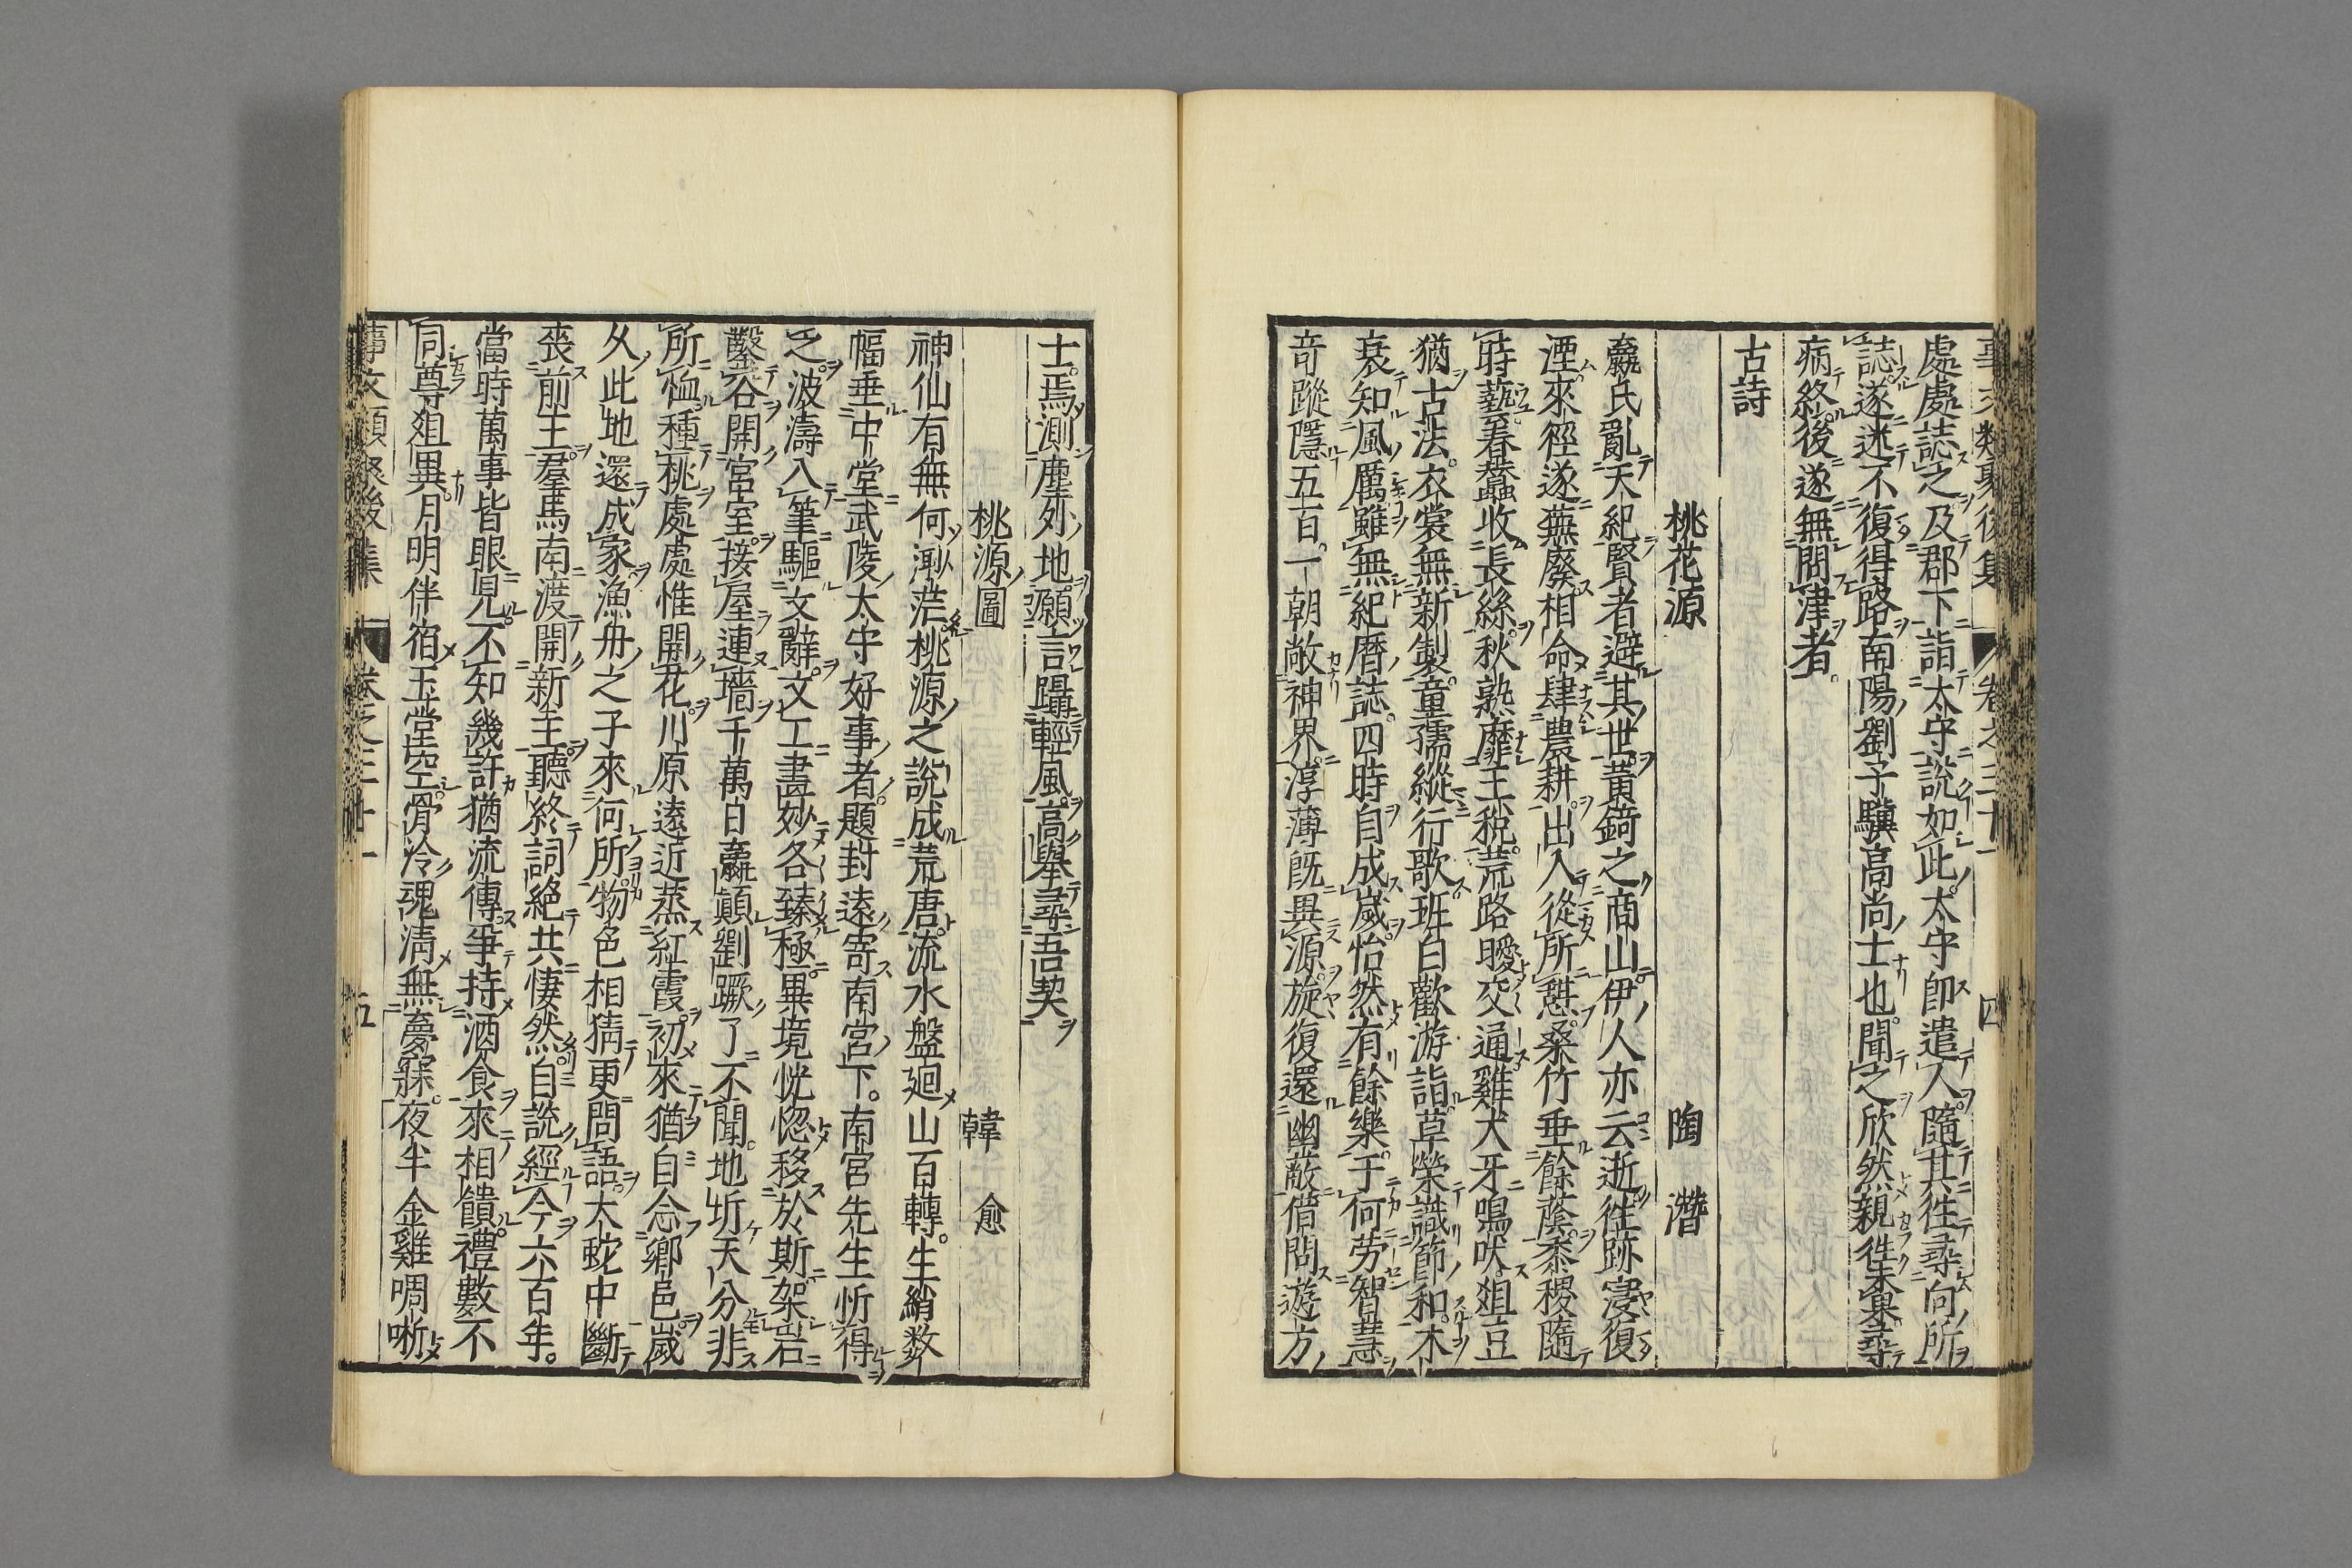 事文類聚後集 卷之三十一 四
處處誌之及郡下詣太守說如此太守卽遣人隨其往尋向所
誌遂迷不復得路南陽劉子驥高尚士也聞之欣然親往未果尋
病終後遂無問津者
古詩
桃花源 陶 潛
嬴氏亂天紀賢者避其世黃錡之商山伊人亦云逝徃跡寖復
湮來徑遂蕪廢相命肆農耕出入從所憇桑竹垂餘蔭黍稷隨
時藝春蠶收長絲秋熟靡王稅荒路曖交通雞犬牙鳴吠俎豆
猶古法衣裳無新製童孺縱行歌班白歡游詣草榮識節和木
衰知風厲雖無紀曆誌四時自成歲怡然有餘樂于何劳智慧
竒蹤隱五百一朝敞神界淳薄旣異源旋復還幽蔽借問遊方
士焉測塵外地願言躡輕風高舉尋吾契
桃源圖 韓 愈
神仙有無何渺茫桃源之說成荒唐流水盤廻山百轉生綃数
幅垂中堂武陵太守好事者題封遠寄南宮下南宮先生忻得
之波濤入筆驅文辭文工畫妙各臻極異境恍惚移於斯架岩
鑿谷開宮室接屋連墻千萬日嬴顛劉蹶了不聞地坼天分非
所恤種桃處處惟開花川原遠近蒸紅霞初來猶自念鄉邑歲
久此地還成家漁舟之子來何所物色相猜更問語大蛇中斷
喪前王羣馬南渡開新主聽終詞絕共悽然自說經今六百年
當時萬事皆眼見不知幾許猶流傳爭持酒食來相饋禮數不
同尊俎異月明伴宿玉堂空骨冷魂清無夢寐夜半金雞啁哳
事文類聚後集 卷之三十一 五